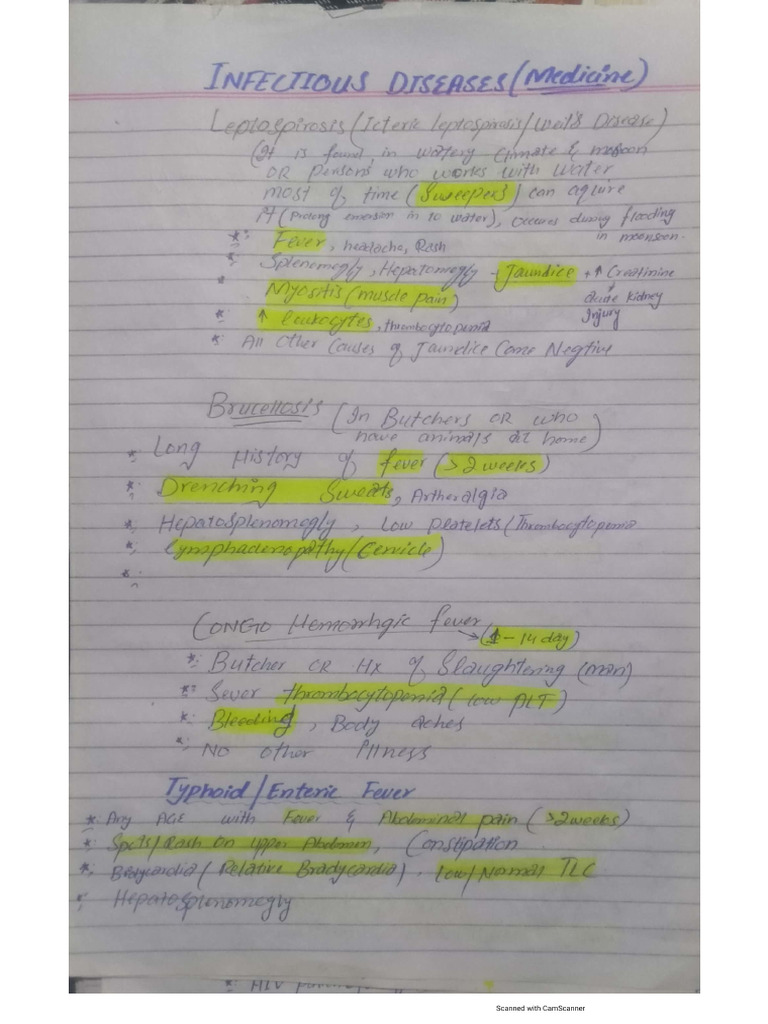 INFECTIOUS DISEASES (Medicine)
Leptospirosis (Icteric leptospirosis/Weil's Disease)
(It is found in watery climate &
OR Persons who works with water
most of time (Sweepers) can aqure
it (Prolong emersion in to water), occures during flooding
in moonson.
*: Fever, headache, Rash
* Splenomegly, Hepatomegly - Jaundice + ↑ Creatinine
* Myositis (muscle pain) acute kidney
Injury
* ↑ leukocytes, thrombocytopenia
* All Other Causes of Jaundice Come Negtive
Brucellosis (In Butchers OR who
have animals at home)
*: Long History of fever (>2 weeks)
*: Drenching Sweats, Artheralgia
*: Hepatosplenomegly, Low Platelets (Thrombocytopenia
*: Lymphadenopathy (Cervicle)
*:
CONGO Hemorrhgic fever
→ (1-14 day)
*: Butcher OR Hx of Slaughtering (man)
*: Sever thrombocytopenia (low PLT)
*: Bleeding, Body aches
*: No other Illness
Typhoid/Enteric Fever
*: Any AGE with Fever & Abdominal pain (>2weeks)
*: Spots/Rash on upper Abdomen, Constipation
*: Bradycardia (Relative Bradycardia). low/Normal TLC
*: Hepatosplenomegly
Scanned with CamScanner